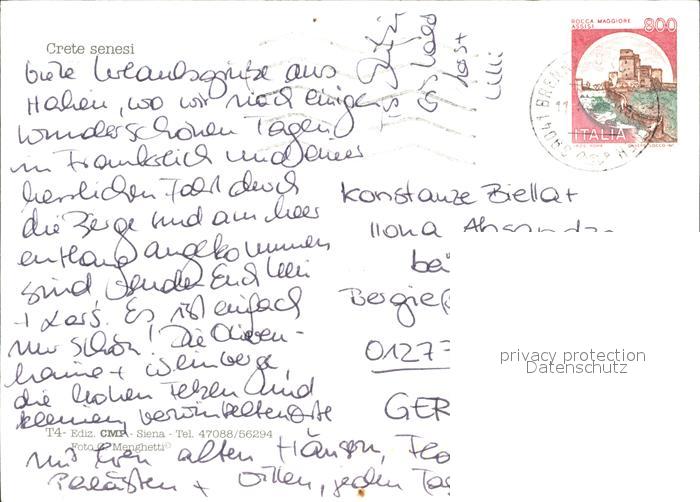 Crete senesi
ROCCA MAGGIORE
ASSISI
800
ITALIA
liebe Urlaubsgrüße aus
Italien, wo wir nach einigen
wunderschönen Tagen
in Frankreich und einer
herrlichen Fahrt durch
die Berge und am Meer
entlang angekommen
sind senden Euch Uli
+ Lars. Es ist einfach
nur schön! Die Oliven-
haine + Weinberge,
die hohen Felsen und
kleinen, verwinkelten Orte
mit ihren alten Häusern,
Palästen + Villen, jeden Tag
Konstanze Biella +
Ilona
bei
0127
GER
T4- Ediz. CMP - Siena - Tel. 47088/56294
Foto G. Menghetti©
privacy protection
Datenschutz